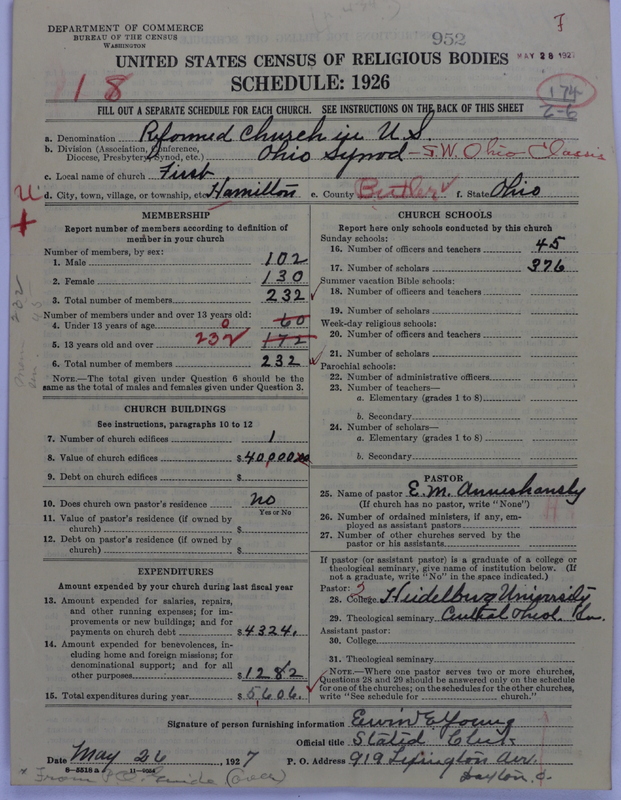 952
DEPARTMENT OF COMMERCE
BUREAU OF THE CENSUS
WASHINGTON
MAY 28 1927
UNITED STATES CENSUS OF RELIGIOUS BODIES
SCHEDULE: 1926
18
174
2-6
FILL OUT A SEPARATE SCHEDULE FOR EACH CHURCH. SEE INSTRUCTIONS ON THE BACK OF THIS SHEET
a. Denomination Reformed Church in U.S.
b. Division (Association, Conference, Diocese, Presbytery, Synod, etc.) Ohio Synod - S.W. Ohio Classis
c. Local name of church First
d. City, town, village, or township, etc. Hamilton e. County Butler f. State Ohio
MEMBERSHIP
Report number of members according to definition of
member in your church
Number of members, by sex:
1. Male 102
2. Female 130
3. Total number of members 232
Number of members under and over 13 years old:
4. Under 13 years of age 0 60
5. 13 years old and over 232 172
6. Total number of members 232
NOTE.—The total given under Question 6 should be the
same as the total of males and females given under Question 3.
CHURCH BUILDINGS
See instructions, paragraphs 10 to 12
7. Number of church edifices 1
8. Value of church edifices $40,000.00
9. Debt on church edifices $
10. Does church own pastor's residence no
Yes or No
11. Value of pastor's residence (if owned by
church) $
12. Debt on pastor's residence (if owned by
church) $
EXPENDITURES
Amount expended by your church during last fiscal year
13. Amount expended for salaries, repairs,
and other running expenses; for im-
provements or new buildings; and for
payments on church debt $4324.
14. Amount expended for benevolences, in-
cluding home and foreign missions; for
denominational support; and for all
other purposes $1282
15. Total expenditures during year $5,606.
CHURCH SCHOOLS
Report here only schools conducted by this church
Sunday schools:
16. Number of officers and teachers 45
17. Number of scholars 376
Summer vacation Bible schools:
18. Number of officers and teachers
19. Number of scholars
Week-day religious schools:
20. Number of officers and teachers
21. Number of scholars
Parochial schools:
22. Number of administrative officers
23. Number of teachers—
a. Elementary (grades 1 to 8)
b. Secondary
24. Number of scholars—
a. Elementary (grades 1 to 8)
b. Secondary
PASTOR
25. Name of pastor E. M.
(If church has no pastor, write "None")
26. Number of ordained ministers, if any, em-
ployed as assistant pastors
27. Number of other churches served by the
pastor or his assistants
If pastor (or assistant pastor) is a graduate of a college or
theological seminary, give name of institution below. (If
not a graduate, write "No" in the space indicated.)
Pastor:
28. College Heidelburg University
29. Theological seminary Central Theol. Sem.
Assistant pastor:
30. College
31. Theological seminary
NOTE.—Where one pastor serves two or more churches,
Questions 28 and 29 should be answered only on the schedule
for one of the churches; on the schedules for the other churches,
write "See schedule for church."
Signature of person furnishing information Ewin E Young
Official title Stated Clerk
Date May 26, 1927 P. O. Address 919 Lexington Ave.
8-5518 a 11-9054 Dayton, O.